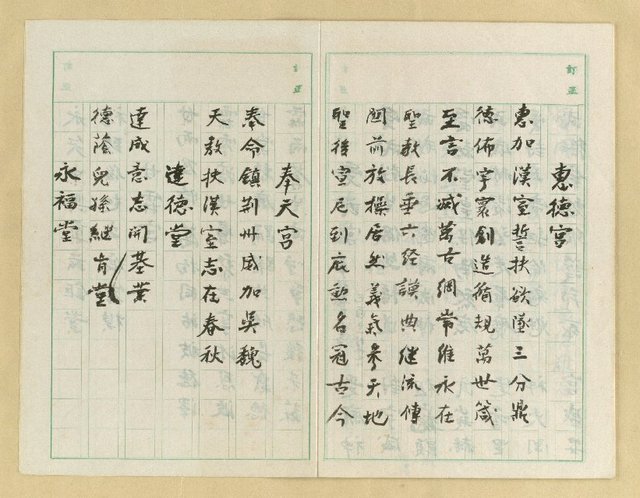 訂正
惠德宮
惠加漢室誓扶欲墜三分鼎
德佈宇寰創造簡規萬世箴
至言不滅萬古綱常維永在
聖教長垂六經謨典繼流傳
闕前放操居然義氣參天地
聖後宣尼到底勳名冠古今
訂正
奉天宮
奉令鎮荆州威加吳魏
天教扶漢室志在春秋
達德堂
達成意志開基業
德蔭兒孫繼肯堂
永福堂